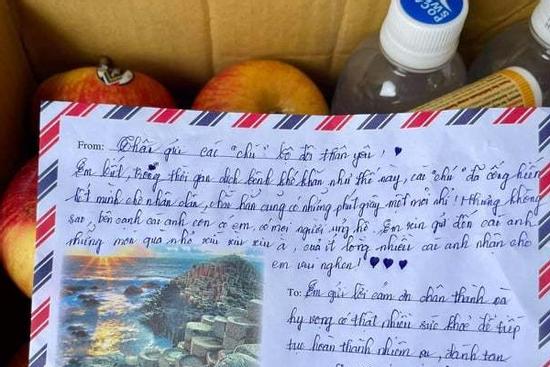 POCA
SWEA
From: Thân gửi các "chú" bộ đội thân yêu!
Em biết, trong thời gian dịch bệnh khó khăn như thế này, các "chú" đã cống hiến
hết mình cho nhân dân, chắc hẳn cũng có những phút giây mệt mỏi nhỉ! Nhưng không
sao, bên cạnh các anh còn có em, có mọi người ủng hộ. Em xin gửi đến các anh
những món quà nhỏ xíu xiu xiu à, của ít lòng nhiều các anh nhận cho
em vui nghen!
To: Em gửi lời cảm ơn chân thành và
hy vọng có thật nhiều sức khoẻ để tiếp
tục hoàn thành nhiệm vụ, đánh tan